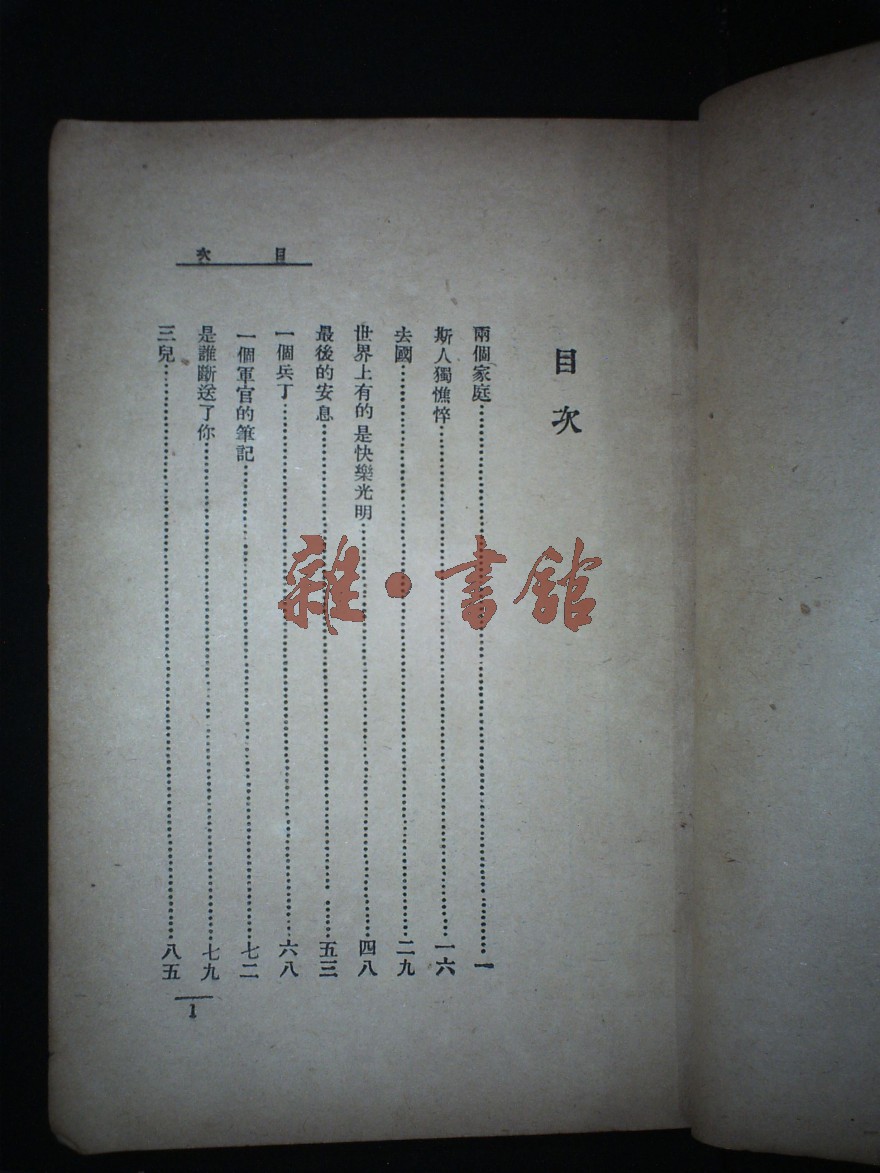 目次
目次
兩個家庭……一
斯人獨憔悴……一六
去國……二九
世界上有的是快樂光明……四八
最後的安息……五三
一個兵丁……六八
一個軍官的筆記……七二
是誰斷送了你……七九
三兒……八五
1
雜・書館